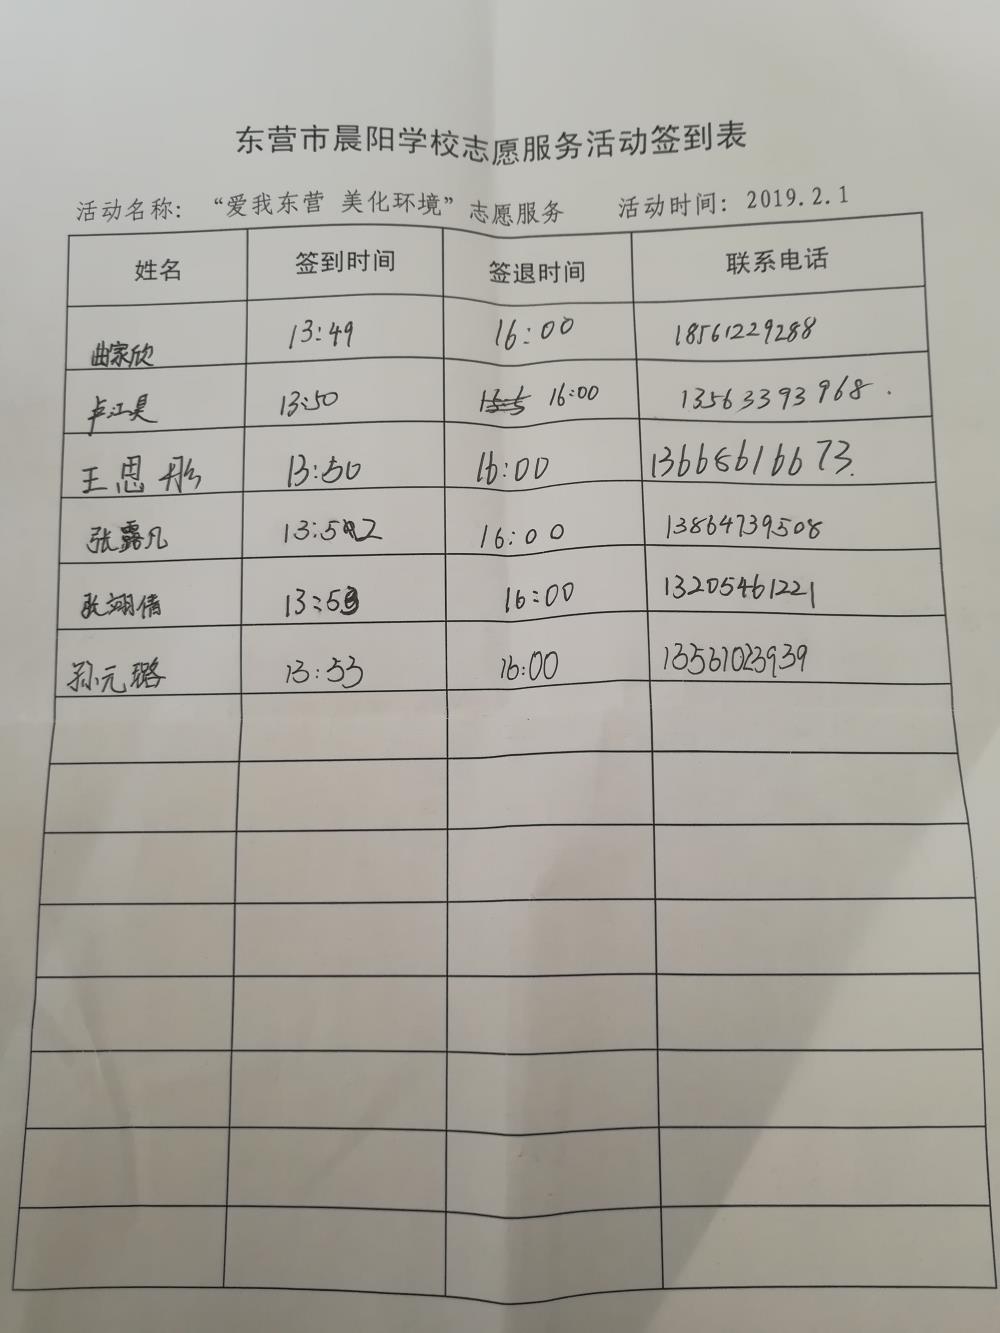 东营市晨阳学校志愿服务活动签到表
活动名称：“爱我东营 美化环境”志愿服务 活动时间：2019.2.1
姓名 签到时间 签退时间 联系电话
曲家欣 13:49 16:00 18561229288
卢江昊 13:50 16:00 13563393968.
王思彤 13:50 16:00 13668616673.
张露凡 13:52 16:00 13864739508
张翊倩 13:53 16:00 13205461221
孙元璐 13:53 16:00 13561023939